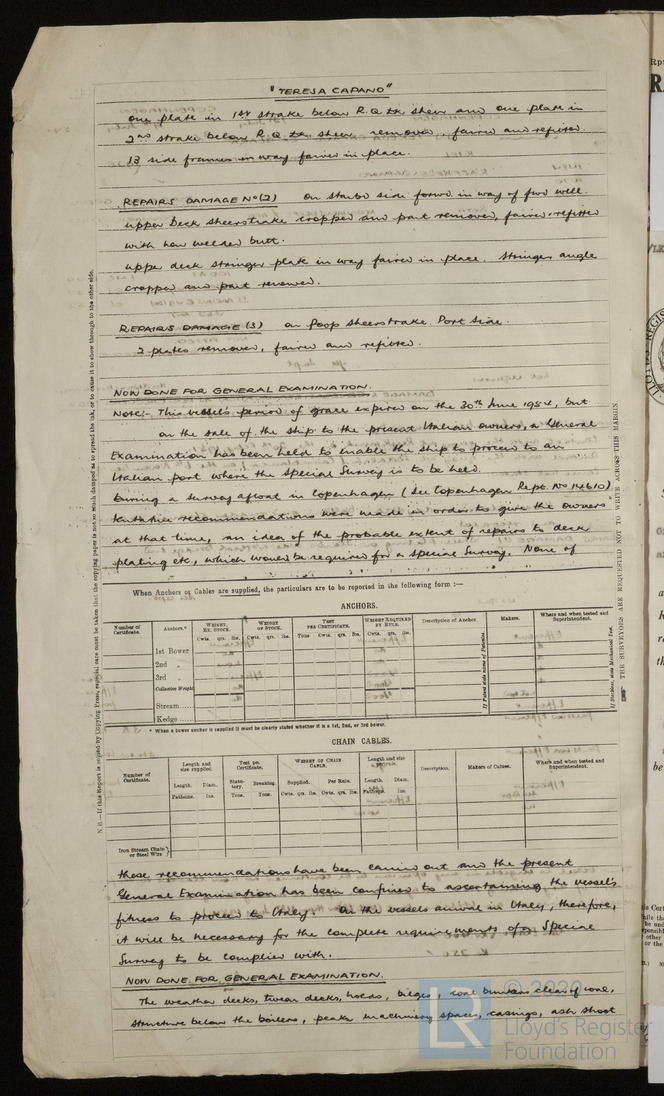 "TERESA CAPANO"
one plate in 1st strake below R.Q. Dk sheer and one plate in
2nd strake below R.Q. Dk sheer removed, faired and refitted.
13 side frames in way faired in place.
REPAIRS DAMAGE No (2) on starbd side forwd in way of fwd well.
upper Deck sheerstrake cropped and part removed, faired & refitted
with new welded butt.
upper deck stringer plate in way faired in place. Stringer angle
cropped and part renewed.
REPAIRS DAMAGE (3) on Poop Sheerstrake. Port side.
2 plates removed, faired and refitted.
NOW DONE FOR GENERAL EXAMINATION.
Note:- This vessel's period of grace expired on the 30th June 1954, but
on the sale of the ship to the present Italian owners, a General
Examination has been held to enable the ship to proceed to an
Italian port where the Special Survey is to be held.
During a survey afloat in Copenhagen (See Copenhagen Rept. No 14610)
recommendations were made in order to give the owners
at that time, an idea of the probable extent of repairs to deck
plating etc., which would be required for a Special Survey. None of
When Anchors or Cables are supplied, the particulars are to be reported in the following form :—
ANCHORS.
Number of Certificate. Anchors.* WEIGHT, EX. STOCK. WEIGHT OF STOCK. TEST PER CERTIFICATE. WEIGHT REQUIRED BY RULE. Description of Anchor. Makers. Where and when tested and Superintendent.
Cwts. qrs. lbs. Cwts. qrs. lbs. Tons Cwt. qrs. lbs. Cwts. qrs. lbs.
1st Bower
2nd „
3rd „
Collective Weight
Stream
Kedge
If Patent state name of Patentee.
* When a bower anchor is supplied it must be clearly stated whether it is a 1st, 2nd, or 3rd bower.
CHAIN CABLES.
Number of Certificate. Length and size supplied. Test per Certificate. WEIGHT OF CHAIN CABLE. Length and size per rule. Description. Makers of Cables. Where and when tested and Superintendent.
Length. Diam. Statutory. Breaking. Supplied. Per Rule. Length. Diam.
Fathoms. Ins. Tons. Tons. Cwts. qrs. lbs. Cwts. qrs. lbs. Fathoms. Ins.
Iron Stream Chain or Steel Wire
these recommendations have been carried out and the present
General Examination has been confined to ascertaining the vessel's
fitness to proceed to Italy. On the vessels arrival in Italy, therefore,
it will be necessary for the complete requirements of a Special
Survey to be complied with.
NOW DONE FOR GENERAL EXAMINATION.
The weather decks, tween decks, holds, bilges, coal bunkers clear of coal,
structure below the boilers, peaks machinery spaces, casings, ash shoot
N.B.—If this Report is copied by Copying Press, especial care must be taken that the copying paper is not so much damped as to spread the ink, or to cause it to show through to the other side.
THE SURVEYORS ARE REQUESTED NOT TO WRITE ACROSS THIS MARGIN.
© 2020
LR
Lloyd's Register
Foundation